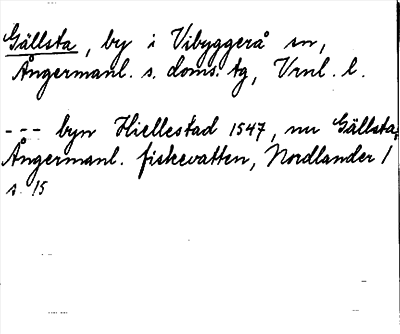 Gällsta, by i Vibyggerå sn,
Ångermanl. s. doms: tg, Vrnl. l.
--- byn Hiellestad 1547, nu Gällsta,
Ångermanl. fiskevatten, Nordlander 1
s. 15